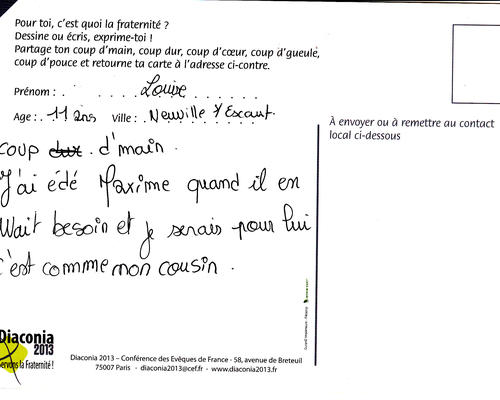 Pour toi, c'est quoi la fraternité ?
Dessine ou écris, exprime-toi !
Partage ton coup d'main, coup dur, coup d'cœur, coup d'gueule,
coup d'pouce et retourne ta carte à l'adresse ci-contre.
Prénom : Louise
Age : 11 ans Ville : Neuville / Escaut
À envoyer ou à remettre au contact
local ci-dessous
coup dur d'main.
J'ai édé Maxime quand il en
Wait besoin et je serais pour lui
c'est comme mon cousin.
Diaconia
2013
ervons la Fraternité !
Diaconia 2013 – Conférence des Evêques de France - 58, avenue de Breteuil
75007 Paris - diaconia2013@cef.fr - www.diaconia2013.fr